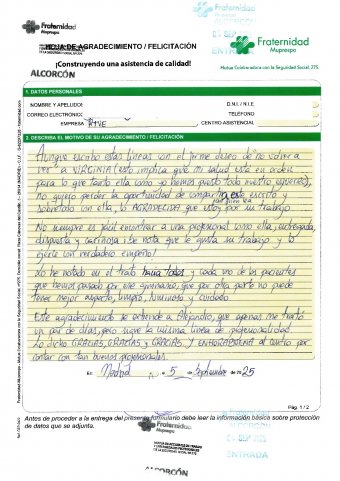 Fraternidad
Muprespa
HOJA DE AGRADECIMIENTO / FELICITACIÓN
¡Construyendo una asistencia de calidad!
ALCORCÓN
Fraternidad
Muprespa
Mutua Colaboradora con la Seguridad Social, 275
1. DATOS PERSONALES
NOMBRE Y APELLIDOS
D.N.I. / N.I.E.
CORREO ELECTRÓNICO
TELÉFONO
EMPRESA RTVE
CENTRO ASISTENCIAL
2. DESCRIBA EL MOTIVO DE SU AGRADECIMIENTO / FELICITACIÓN
Aunque escribo estas líneas con el firme deseo de "no volver a
ver" a VIRGINIA (esto implica que mi salud está en orden
para lo que tanto ella como yo hemos puesto todo nuestro esfuerzo),
no quiero perder la oportunidad de compartir este escrito y
sobretodo con ella, lo AGRADECIDA que estoy por su trabajo.
No siempre es fácil encontrar a una profesional como ella, entregada,
dispuesta y cariñosa. Se nota que le gusta su trabajo y lo
ejerce con verdadero empeño!
Lo he notado en el trato hacia todos y cada uno de los pacientes
que hemos pasado por ese gimnasio, que por otra parte no puede
tener mejor aspecto, limpio, luminoso y cuidado.
Este agradecimiento se extiende a Alejandro, que apenas me trató
un par de días, pero sigue la misma línea de profesionalidad.
Lo dicho GRACIAS, GRACIAS y GRACIAS. Y ENHORABUENA al centro por
contar con tan buenos profesionales.
En Madrid, a 5 de Septiembre de 2025
Pág. 1 / 2
Antes de proceder a la entrega del presente formulario debe leer la información básica sobre protección
de datos que se adjunta.
Fraternidad
Muprespa
ALCORCÓN
ENTRADA